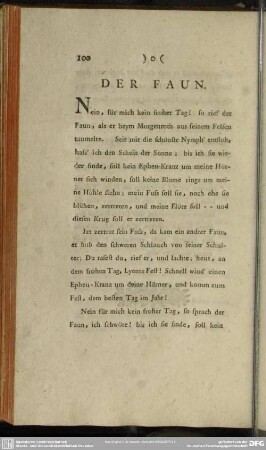 100 ) o (
DER FAUN.
Nein, für mich kein froher Tag! so rief der
Faun, als er beym Morgenroth aus seinem Felsen
taumelte. Seit mir die schönste Nymph' entfloh,
hass' ich den Schein der Sonne; bis ich sie wie-
der finde, soll kein Epheu-Kranz um meine Hör-
ner sich winden, soll keine Blume rings um mei-
ne Höhle stehn; mein Fuss soll sie, noch ehe sie
blühen, zertreten, und meine Flöte soll -- und
diesen Krug soll er zertreten.
Izt zertrat sein Fuss, da kam ein andrer Faun,
er hub den schweren Schlauch von seiner Schul-
ter; Du rasest du, rief er, und lachte; heut, an
dem frohen Tag, Lyäens Fest! Schnell wind' einen
Epheu-Kranz um deine Hörner, und komm zum
Fest, dem besten Tag im Jahr!
Nein für mich kein froher Tag, so sprach der
Faun, ich schwöre! bis ich sie finde, soll kein